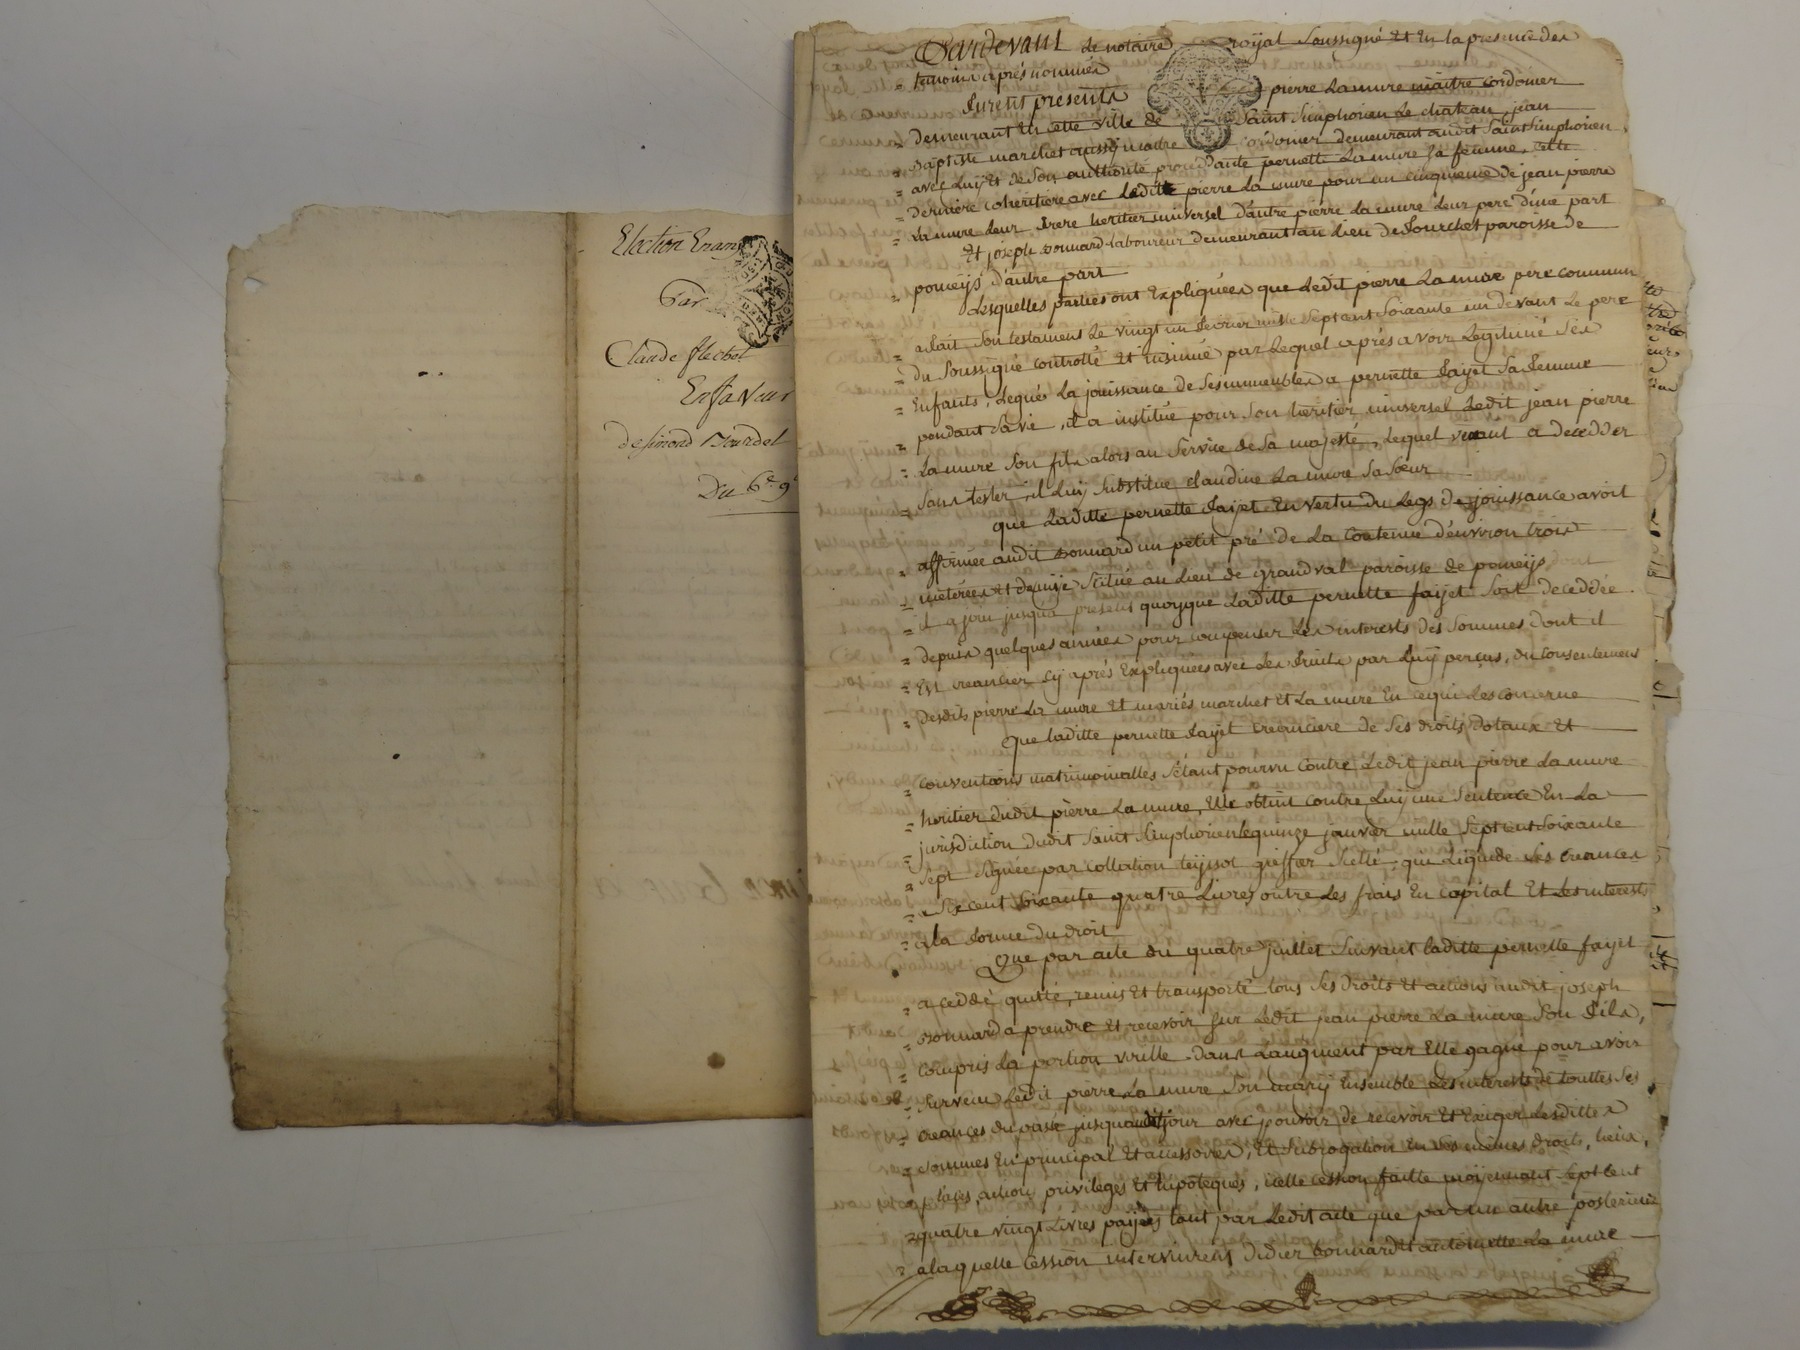 Election En am
Par
Claude flechet
En faveur
de simond Bourdel
Du 6e 9
Pardevant Le notaire royal Soussigné Et En la presence des
temoins aprés nommés
furent presents pierre La mure maitre Cordonier
demeurant En cette ville de Saint Simphorien Le chateau, jean
Baptiste marchet aussy maitre Cordonier demeurant audit Saint Simphorien,
avec Luy Et de Son authorité procedante pernette La mure Sa femme, cette
derniere coheritiere avec Ledit pierre La mure pour un cinquieme de jean pierre
La mure Leur frere heritier universel d'autre pierre La mure Leur pere d'une part
Et joseph Bonnard Laboureur demeurant au Lieu de fourchet paroisse de
pomeys d'autre part
Lesquelles parties ont Expliquées que Ledit pierre La mure pere commun
a fait Son testament Le vingt un fevrier mille Sept cent Soixante un devant Le pere
du Soussigné controllé Et insinué par Lequel aprés avoir Legitimé Ses
Enfants, Legués La jouissance de Ses immeubles a pernette fayet Sa femme
pendant Sa vie, il a institué pour Son heritier universel Ledit jean pierre
La mure Son fils alors au Service de Sa majesté, Lequel venant a decedder
Sans tester, il Luy Substitue claudine La mure Sa Sœur
que Laditte pernette fayet En vertu du Legs de jouissance avoit
affermée audit Bonnard un petit pré de La Contenue d'environ trois
meterées et demye Scitué au Lieu de grandval paroisse de pomeys,
il a joui jusqua present quoyque Laditte pernette fayet Soit deceddée
depuis quelques années pour compenser Les interests des Sommes dont il
Est creancier cy aprés Expliquées avec Les fruits par Luy perçus, du consentement
desdits pierre La mure Et mariés marchet Et La mure En ce qui Les concerne
Que laditte pernette fayet creanciere de Ses droits Dotaux Et
conventions matrimonialles S'etant pourvu contre Ledit jean pierre La mure
heritier dudit pierre La mure, Elle obtint contre Luy une Sentence En La
jurisdiction dudit Saint Simphorien Le quinze janvier mille Sept cent Soixante
Sept Signée par collation teyssot greffier Scellé, qui Liquide Ses creances
a Six cent Soixante quatre Livres outre Les frais En capital Et Les interests
a la forme du droit
Que par acte du quatre juillet Suivant laditte pernette fayet
a ceddé quitté, remis Et transporté tous Ses droits Et actions audit joseph
Bonnard a prendre Et recevoir Sur Ledit jean pierre La mure Son fils,
compris La portion virille dans L'augment par Elle gagné pour avoir
Survecu Ledit pierre La mure Son mary Ensemble Les interests de touttes Ses
creances du passé jusquaudit jour avec pouvoir de recevoir Et Exiger Lesdittes
Sommes En principal Et accessoires, Et Subrogation En Ses mêmes droits, lieux,
places, action, privileges Et hipoteques, icelle cession faitte moyennant Sept cent
quatre vingt Livres payées tant par Ledit acte que par un autre posterieur
a laquelle cession intervinrent didier Bonnard Et antoinette La mure